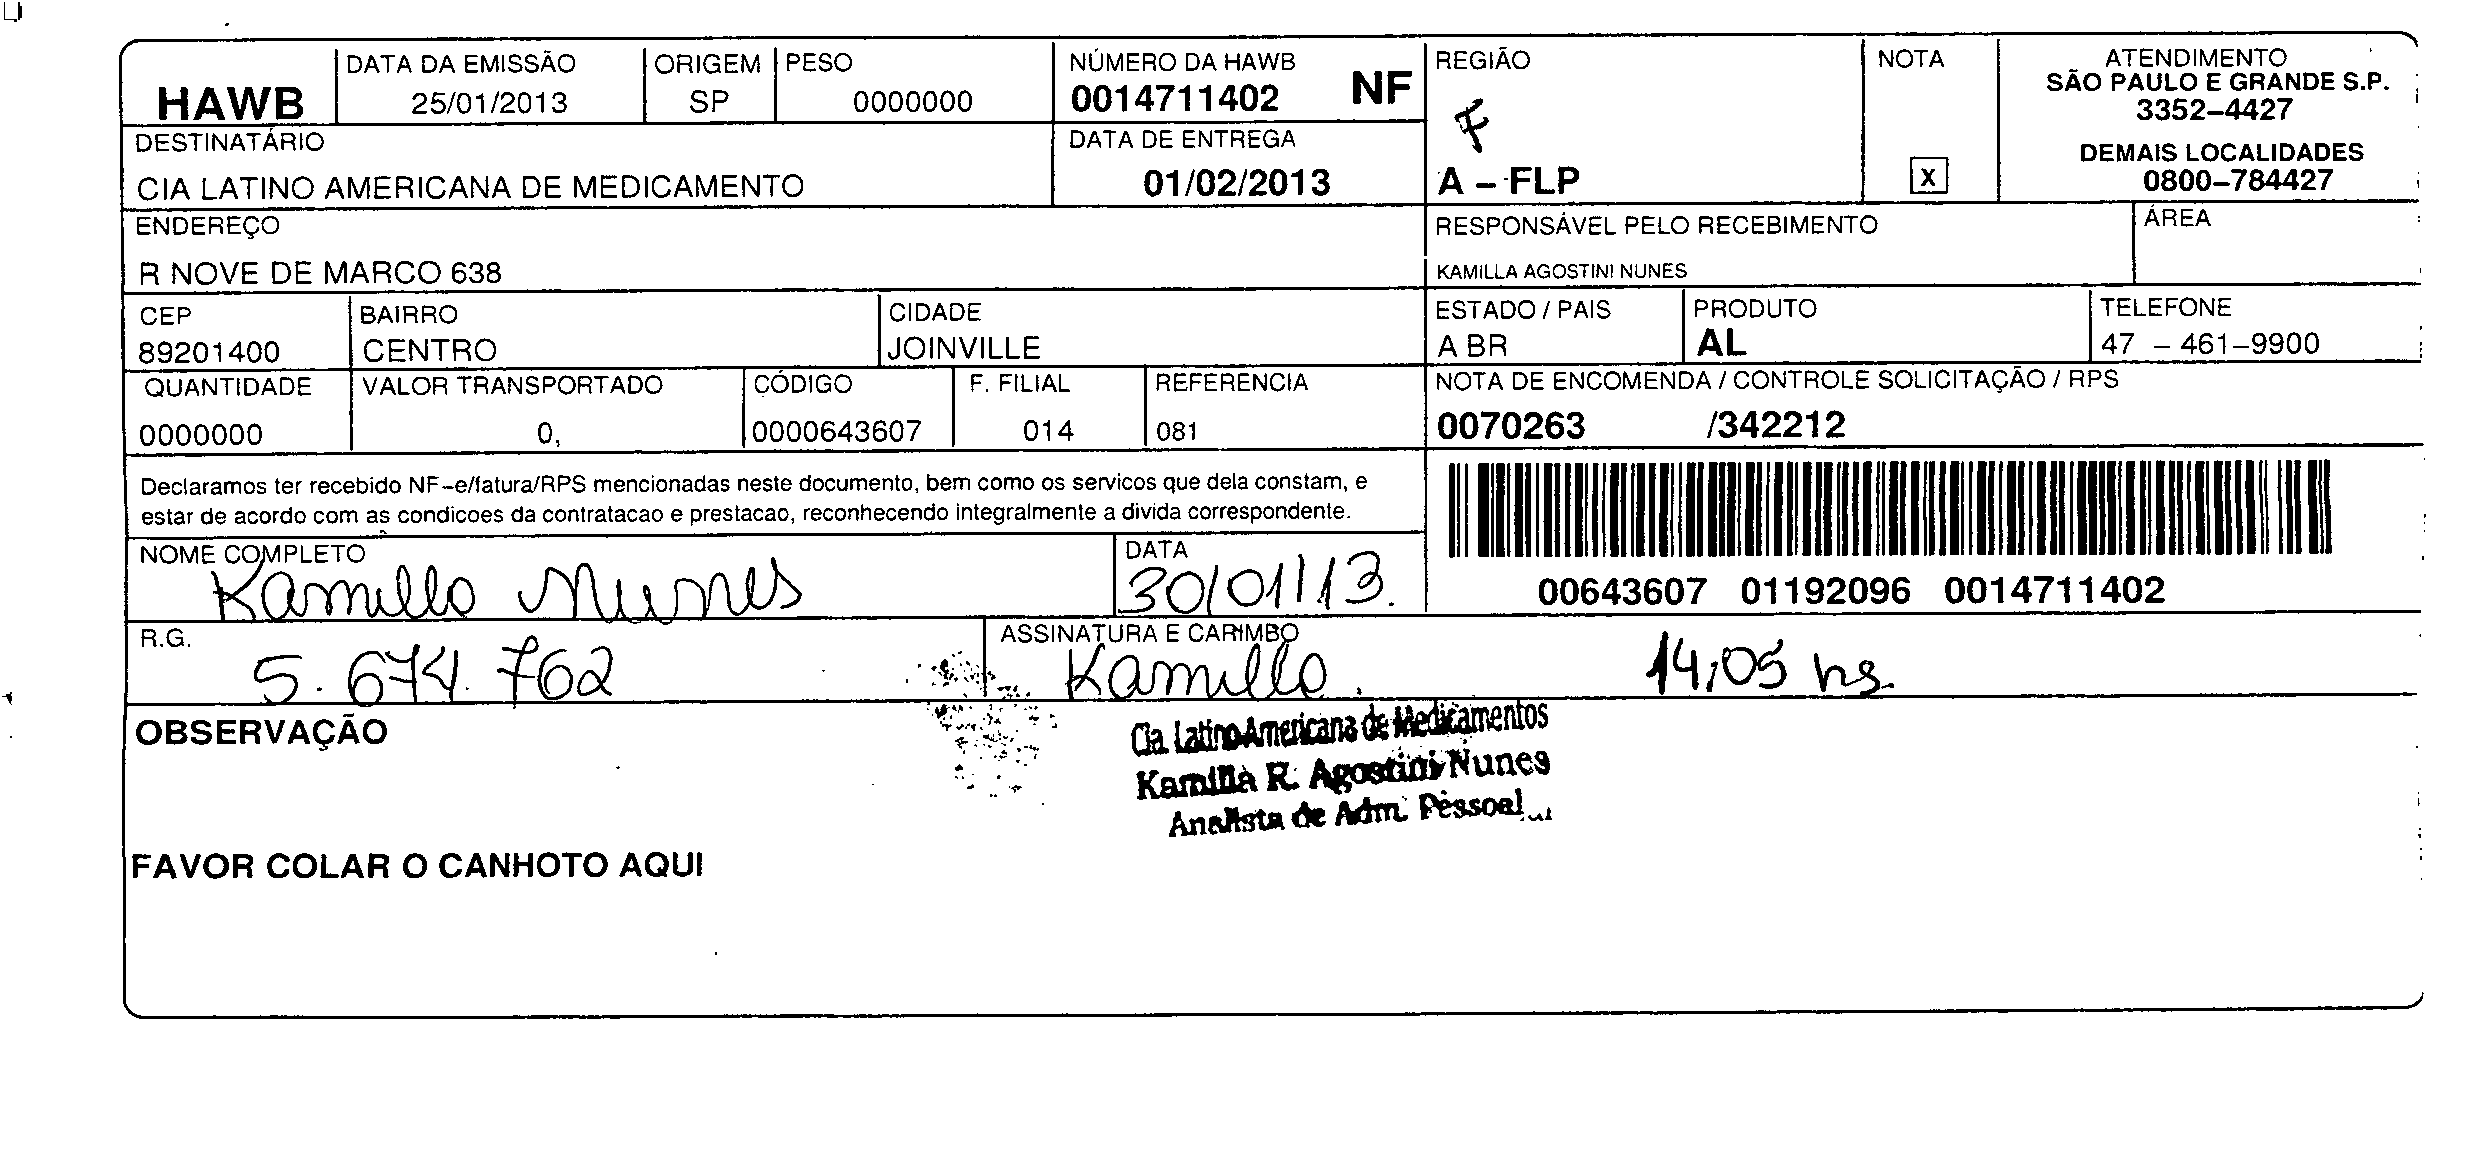 HAWB
DATA DA EMISSÃO
25/01/2013
ORIGEM
SP
PESO
0000000
NÚMERO DA HAWB
0014711402 NF
REGIÃO
F
A – FLP
NOTA
X
ATENDIMENTO
SÃO PAULO E GRANDE S.P.
3352–4427
DEMAIS LOCALIDADES
0800–784427
DESTINATÁRIO
CIA LATINO AMERICANA DE MEDICAMENTO
DATA DE ENTREGA
01/02/2013
ENDEREÇO
R NOVE DE MARCO 638
RESPONSÁVEL PELO RECEBIMENTO
KAMILLA AGOSTINI NUNES
ÁREA
CEP
89201400
BAIRRO
CENTRO
CIDADE
JOINVILLE
ESTADO / PAIS
A BR
PRODUTO
AL
TELEFONE
47 – 461–9900
QUANTIDADE
0000000
VALOR TRANSPORTADO
0,
CÓDIGO
0000643607
F. FILIAL
014
REFERENCIA
081
NOTA DE ENCOMENDA / CONTROLE SOLICITAÇÃO / RPS
0070263 /342212
Declaramos ter recebido NF–e/fatura/RPS mencionadas neste documento, bem como os servicos que dela constam, e
estar de acordo com as condicoes da contratacao e prestacao, reconhecendo integralmente a divida correspondente.
00643607 01192096 0014711402
NOME COMPLETO
Kamilla Nunes
DATA
30/01/13.
R.G.
5.674.762
ASSINATURA E CARIMBO
Kamilla. 14:05 hs.
OBSERVAÇÃO
Cia. Latino Americana de Medicamentos
Kamilla R. Agostini Nunes
Analista de Adm. Pessoal
FAVOR COLAR O CANHOTO AQUI